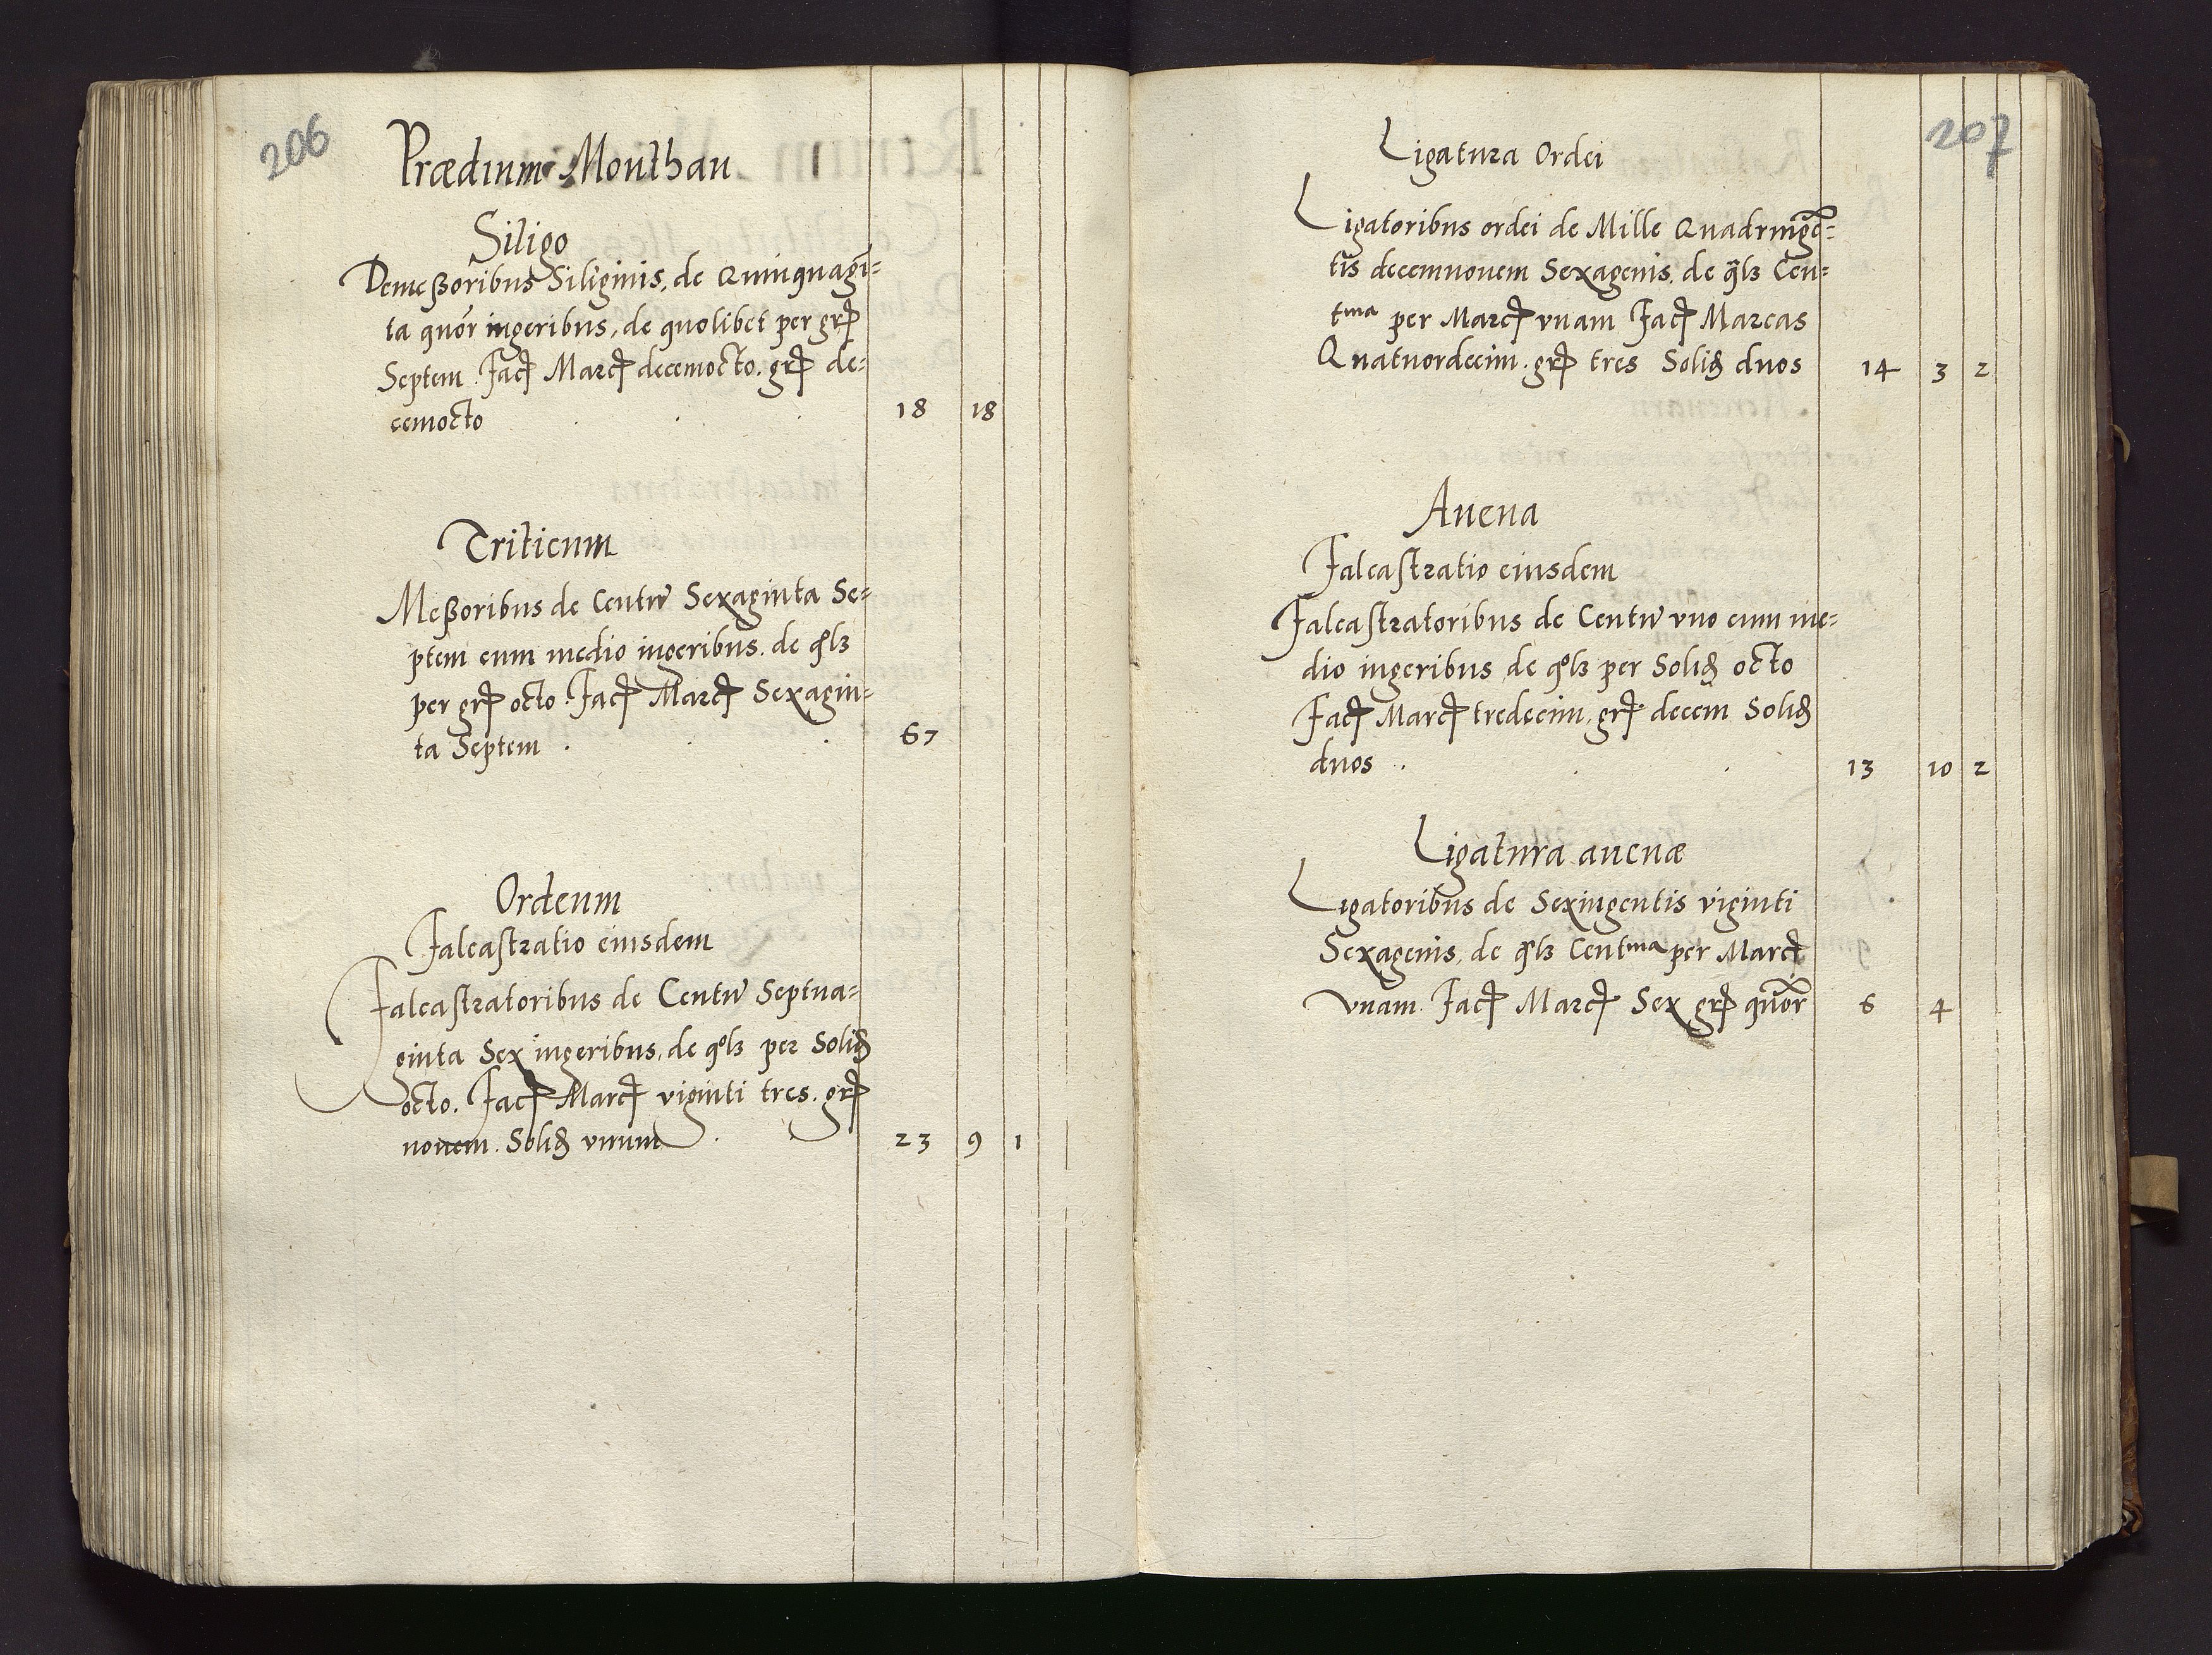 206
Prædium Monthau
Siligo
Demeßoribus Siliginis, de Quinquagi=
ta quór iugeribus, de quolibet per gr̃
Septem. Facֿ Marcֿ decemocto. gr̃ de=
cemocto 18 18
Triticum
Meßoribus de Centũ Sexaginta Se=
ptem cum medio iugeribus. de qͦlꝫ
per gr̃ octo. Facֿ Marcֿ Sexagin=
ta Septem . 67
Ordeum
Falcastratio eiusdem
Falcastratoribus de Centũ Septua=
ginta Sex iugeribus, de qͦlꝫ per Solid
octo. Facֿ Marcֿ viginti tres. gr̃
nouem. Solid vnum 23 9 1
207
Ligatura Ordei
Ligatoribus ordei de Mille Quadringẽ=
tis decemnouem Sexagenis. de q̃lꝫ Cen=
tᵐᵃ per Marcֿ vnam Facֿ Marcas
Quatuordecim. gr̃ tres Solid duos 14 3 2
Auena
Falcastratio eiusdem
Falcastratoribus de Centũ vno cum me=
dio iugeribus de qͦlꝫ per Solid octo
Facֿ Marcֿ tredecim, gr̃ decem Solid
duos . 13 10 2
Ligatura auenæ
Ligatoribus de Sexingentis viginti
Sexagenis, de q̃lꝫ Centᵐᵃ per Marcֿ
vnam. Facֿ Marcֿ Sex gr̃ quór 6 4